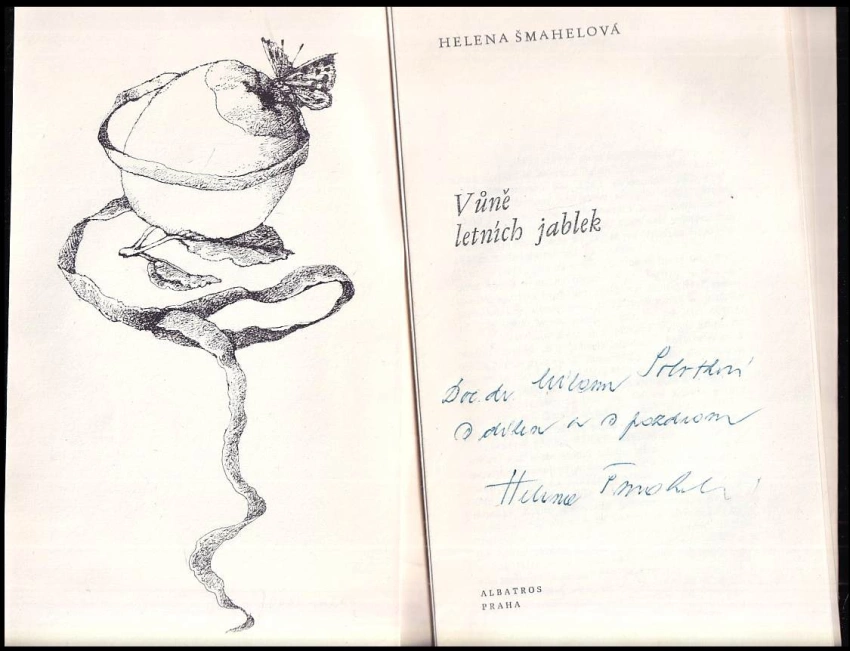 HELENA ŠMAHELOVÁ
Vůně
letních jablek
Doc. dr. Milanu
s a s pozdravem
Helena Šmahelová
ALBATROS
PRAHA